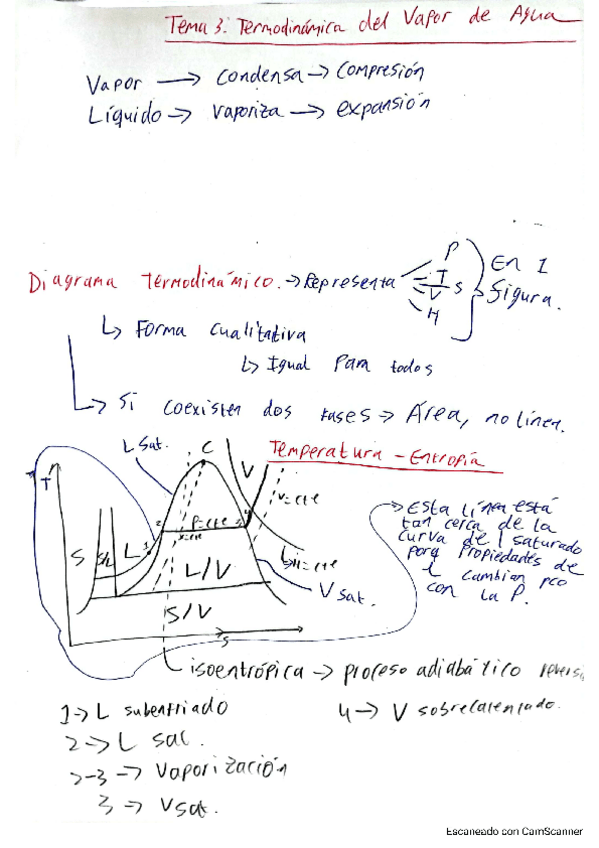 Tema 3: Termodinámica del Vapor de Agua
Vapor → condensa → compresión
Líquido → vaporiza → expansión
Diagrama termodinámico → Representa P T V H S En 1 figura.
↳ Forma cualitativa
↳ Igual para todos
↳ Si coexisten dos fases → Área, no línea.
Temperatura - Entropía
L sat.
C
V
T
v=cte
P=cte
x=cte
H=cte
S
S/L
L
1
2
3
4
L/V
V sat.
S/V
S
→ Esta línea está
tan cerca de la
curva de l saturado
porq propiedades de
l cambian pco
con la P.
isoentrópica → proceso adiabático reversi
1 → L subenfriado
4 → V sobrecalentado.
2 → L sat.
2-3 → Vaporización
3 → V sat.
Escaneado con CamScanner